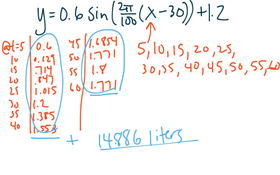 y = 0.6 sin(2π/100 (x - 30)) + 1.2
5, 10, 15, 20, 25,
30, 35, 40, 45, 50, 55, 60
@t=5 0.6
10 0.129
15 .714
20 .847
25 1.015
30 1.2
35 1.385
40 1.553
45 1.6854
50 1.771
55 1.8
60 1.771
+ 14.886 liters